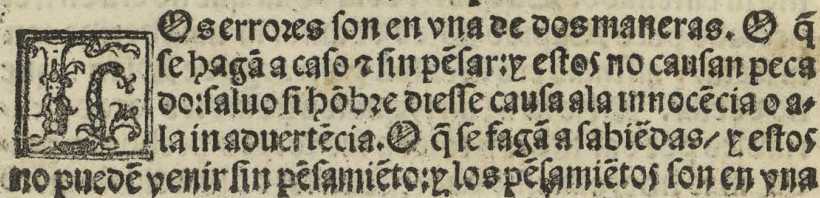 LOs errores son en vna de dos maneras. O q̃
se hagã a caso ⁊ sin pẽsar: y estos no causan peca
do: saluo si hõbre diesse causa ala innocẽcia o a-
la inaduertẽcia. O q̃ se fagã a sabiẽdas/ y estos
no puedẽ venir sin pẽsamiẽto: y los pẽsamiẽtos son en vna